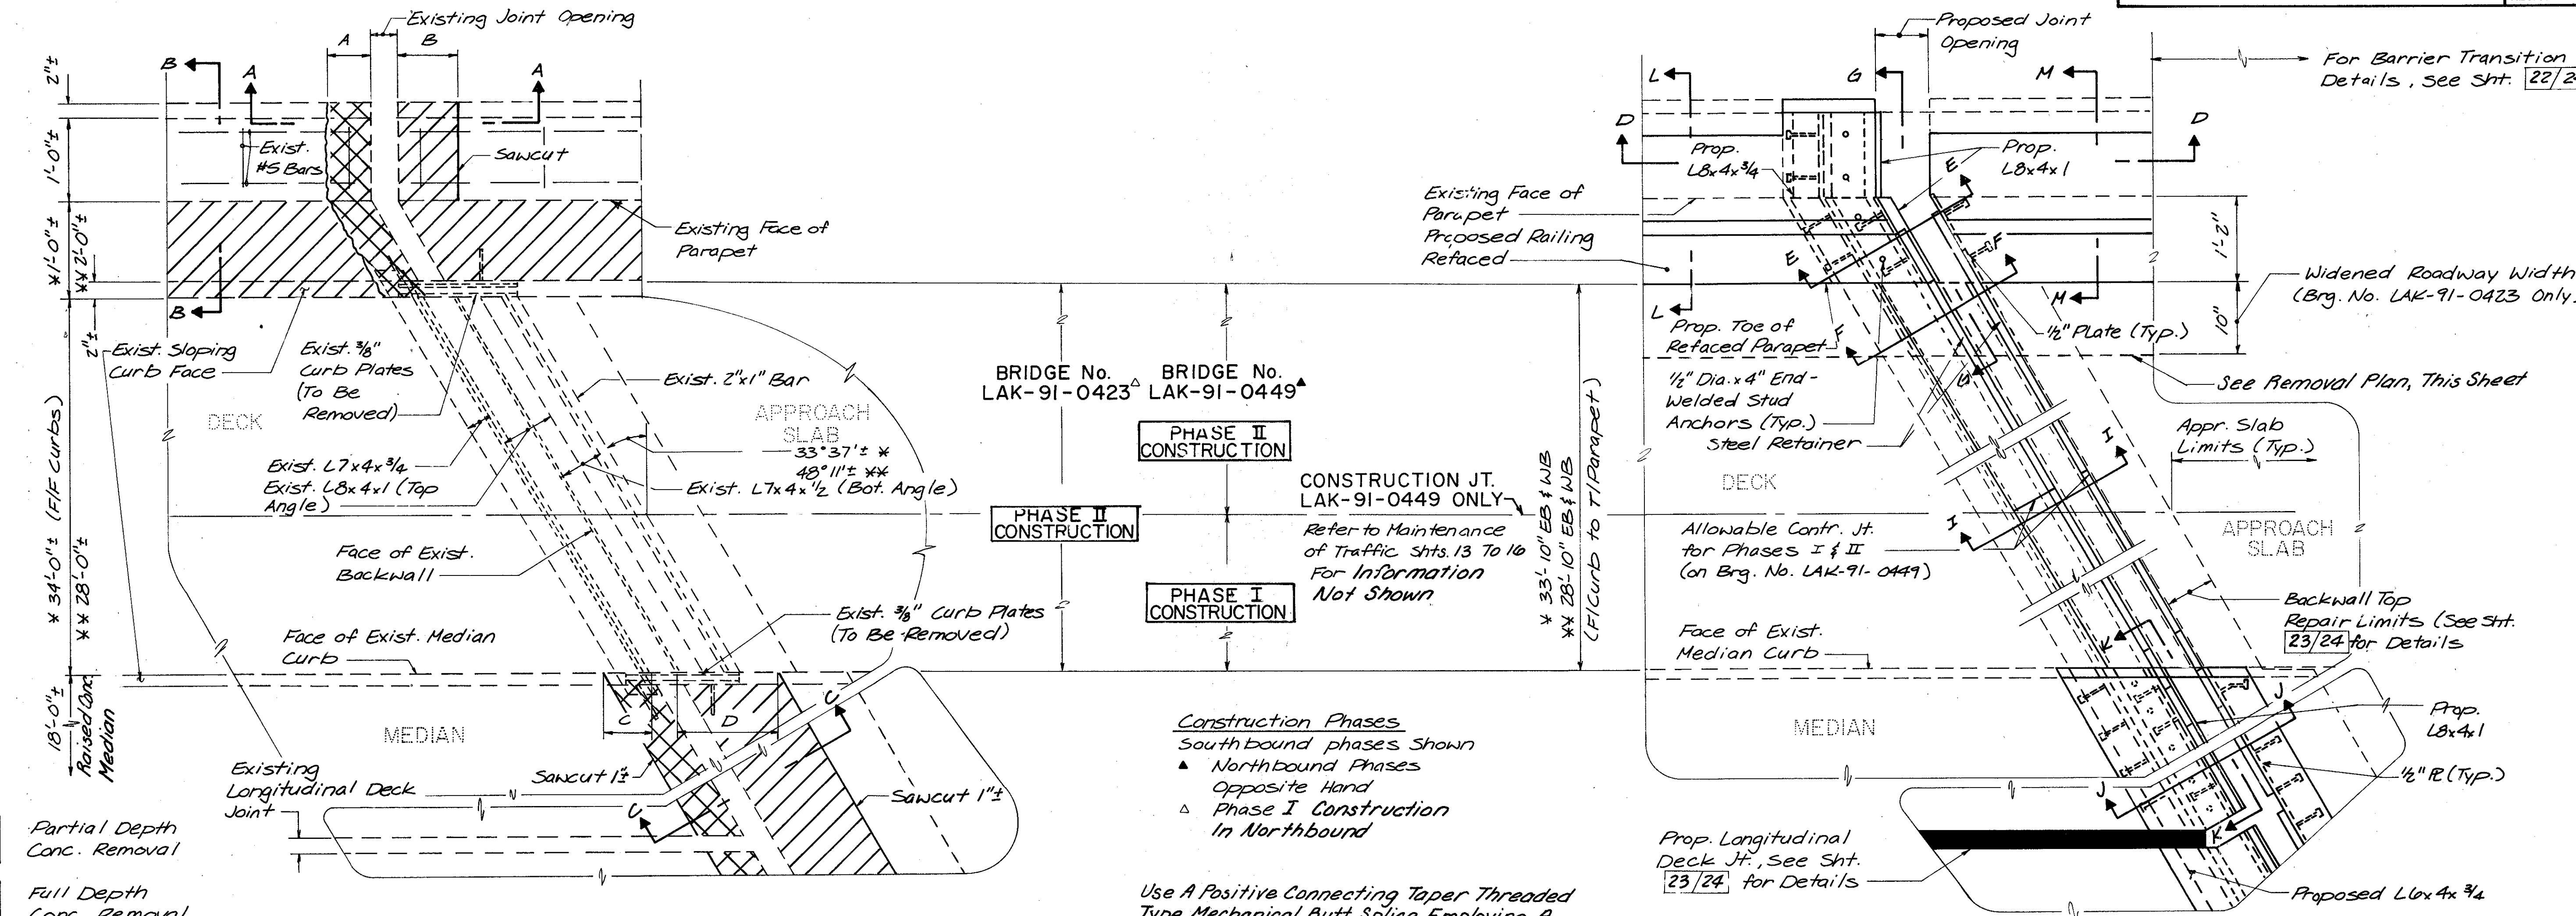 Existing Joint Opening
A
B
B
A
A
2"±
1'-0"±
Exist.
#5 Bars
Sawcut
*1'-0"±
**2'-0"±
Existing Face of
Parapet
B
2"±
Exist. Sloping
Curb Face
Exist. 3/8"
Curb Plates
(To Be
Removed)
Exist. 2"x1" Bar
DECK
APPROACH
SLAB
33°37'± *
48°11'± **
Exist. L7x4x3/4
Exist. L8x4x1 (Top
Angle)
Exist. L7x4x1/2 (Bot. Angle)
* 34'-0"± (F/F Curbs)
** 28'-0"±
Face of Exist.
Backwall
Exist. 3/8" Curb Plates
(To Be Removed)
Face of Exist. Median
Curb
18'-0"±
Raised Conc.
Median
MEDIAN
C
D
C
C
Existing
Longitudinal Deck
Joint
Sawcut 1"±
Sawcut 1"±
Partial Depth
Conc. Removal
Full Depth
Conc. Removal
BRIDGE No.
LAK-91-0423△
BRIDGE No.
LAK-91-0449▲
PHASE II
CONSTRUCTION
PHASE II
CONSTRUCTION
PHASE I
CONSTRUCTION
CONSTRUCTION JT.
LAK-91-0449 ONLY
Refer to Maintenance
of Traffic Shts. 13 To 16
For Information
Not Shown
* 33'-10" EB & WB
** 28'-10" EB & WB
(F/Curb to T/Parapet)
Construction Phases
Southbound phases Shown
▲ Northbound Phases
Opposite Hand
△ Phase I Construction
In Northbound
Use A Positive Connecting Taper Threaded
Type Mechanical Butt Splice Employing A
Proposed Joint
Opening
For Barrier Transition
Details, See Sht. 22/24
L
G
M
D
D
Prop.
L8x4x3/4
Prop.
L8x4x1
E
Existing Face of
Parapet
Proposed Railing
Refaced
1'-2"
F
E
Widened Roadway Width
(Brg. No. LAK-91-0423 Only)
L
M
10"
Prop. Toe of
Refaced Parapet
F
1/2" Plate (Typ.)
G
See Removal Plan, This Sheet
1/2" Dia. x 4" End-
Welded Stud
Anchors (Typ.)
Steel Retainer
Appr. Slab
Limits (Typ.)
I
DECK
APPROACH
SLAB
I
Allowable Contr. Jt.
for Phases I & II
(on Brg. No. LAK-91-0449)
Backwall Top
Repair Limits (See Sht.
23/24 for Details
Face of Exist.
Median Curb
K
J
MEDIAN
Prop.
L8x4x1
1/2" PL (Typ.)
J
K
Prop. Longitudinal
Deck Jt., See Sht.
23/24 for Details
Proposed L6x4x3/4